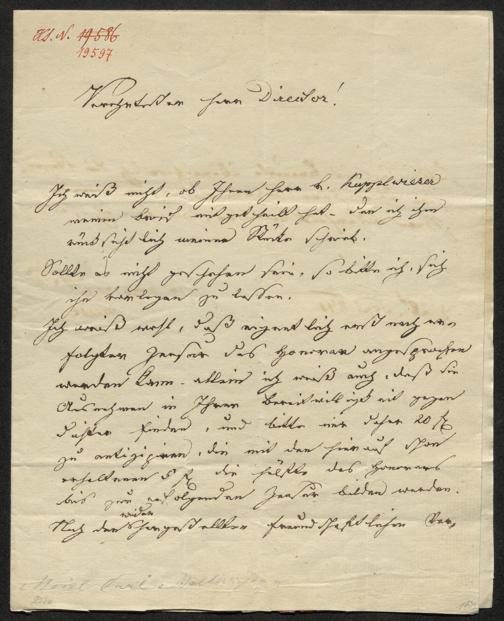 H.I.N. 19586
19597
Verehrtester Herr Director!
Ich weiß nicht, ob Ihnen Herr v. Kuppelwieser
meinen Brief mitgetheilt hat, den ich ihm
rücksichtlich meiner Stücke schrieb.
Sollte es nicht geschehen sein, so bitte ich, sich
ihn vorlegen zu lassen.
Ich weiß wohl, daß eigentlich erst nach er-
folgter Zensur das Honorar angesprochen
werden kann, allein ich weiß auch, daß Sie
Ausnahmen in Ihrer Bereitwilligkeit gegen
Dichter finden, und bitte mir daher 20 f
zu antizipiren, die mit den hierauf schon
erhaltenen 5 f die Hälfte des Honorars
bis zur erfolgenden Zensur bilden werden.
Nach der wieder hergestellten freundschaftlichen Ver-